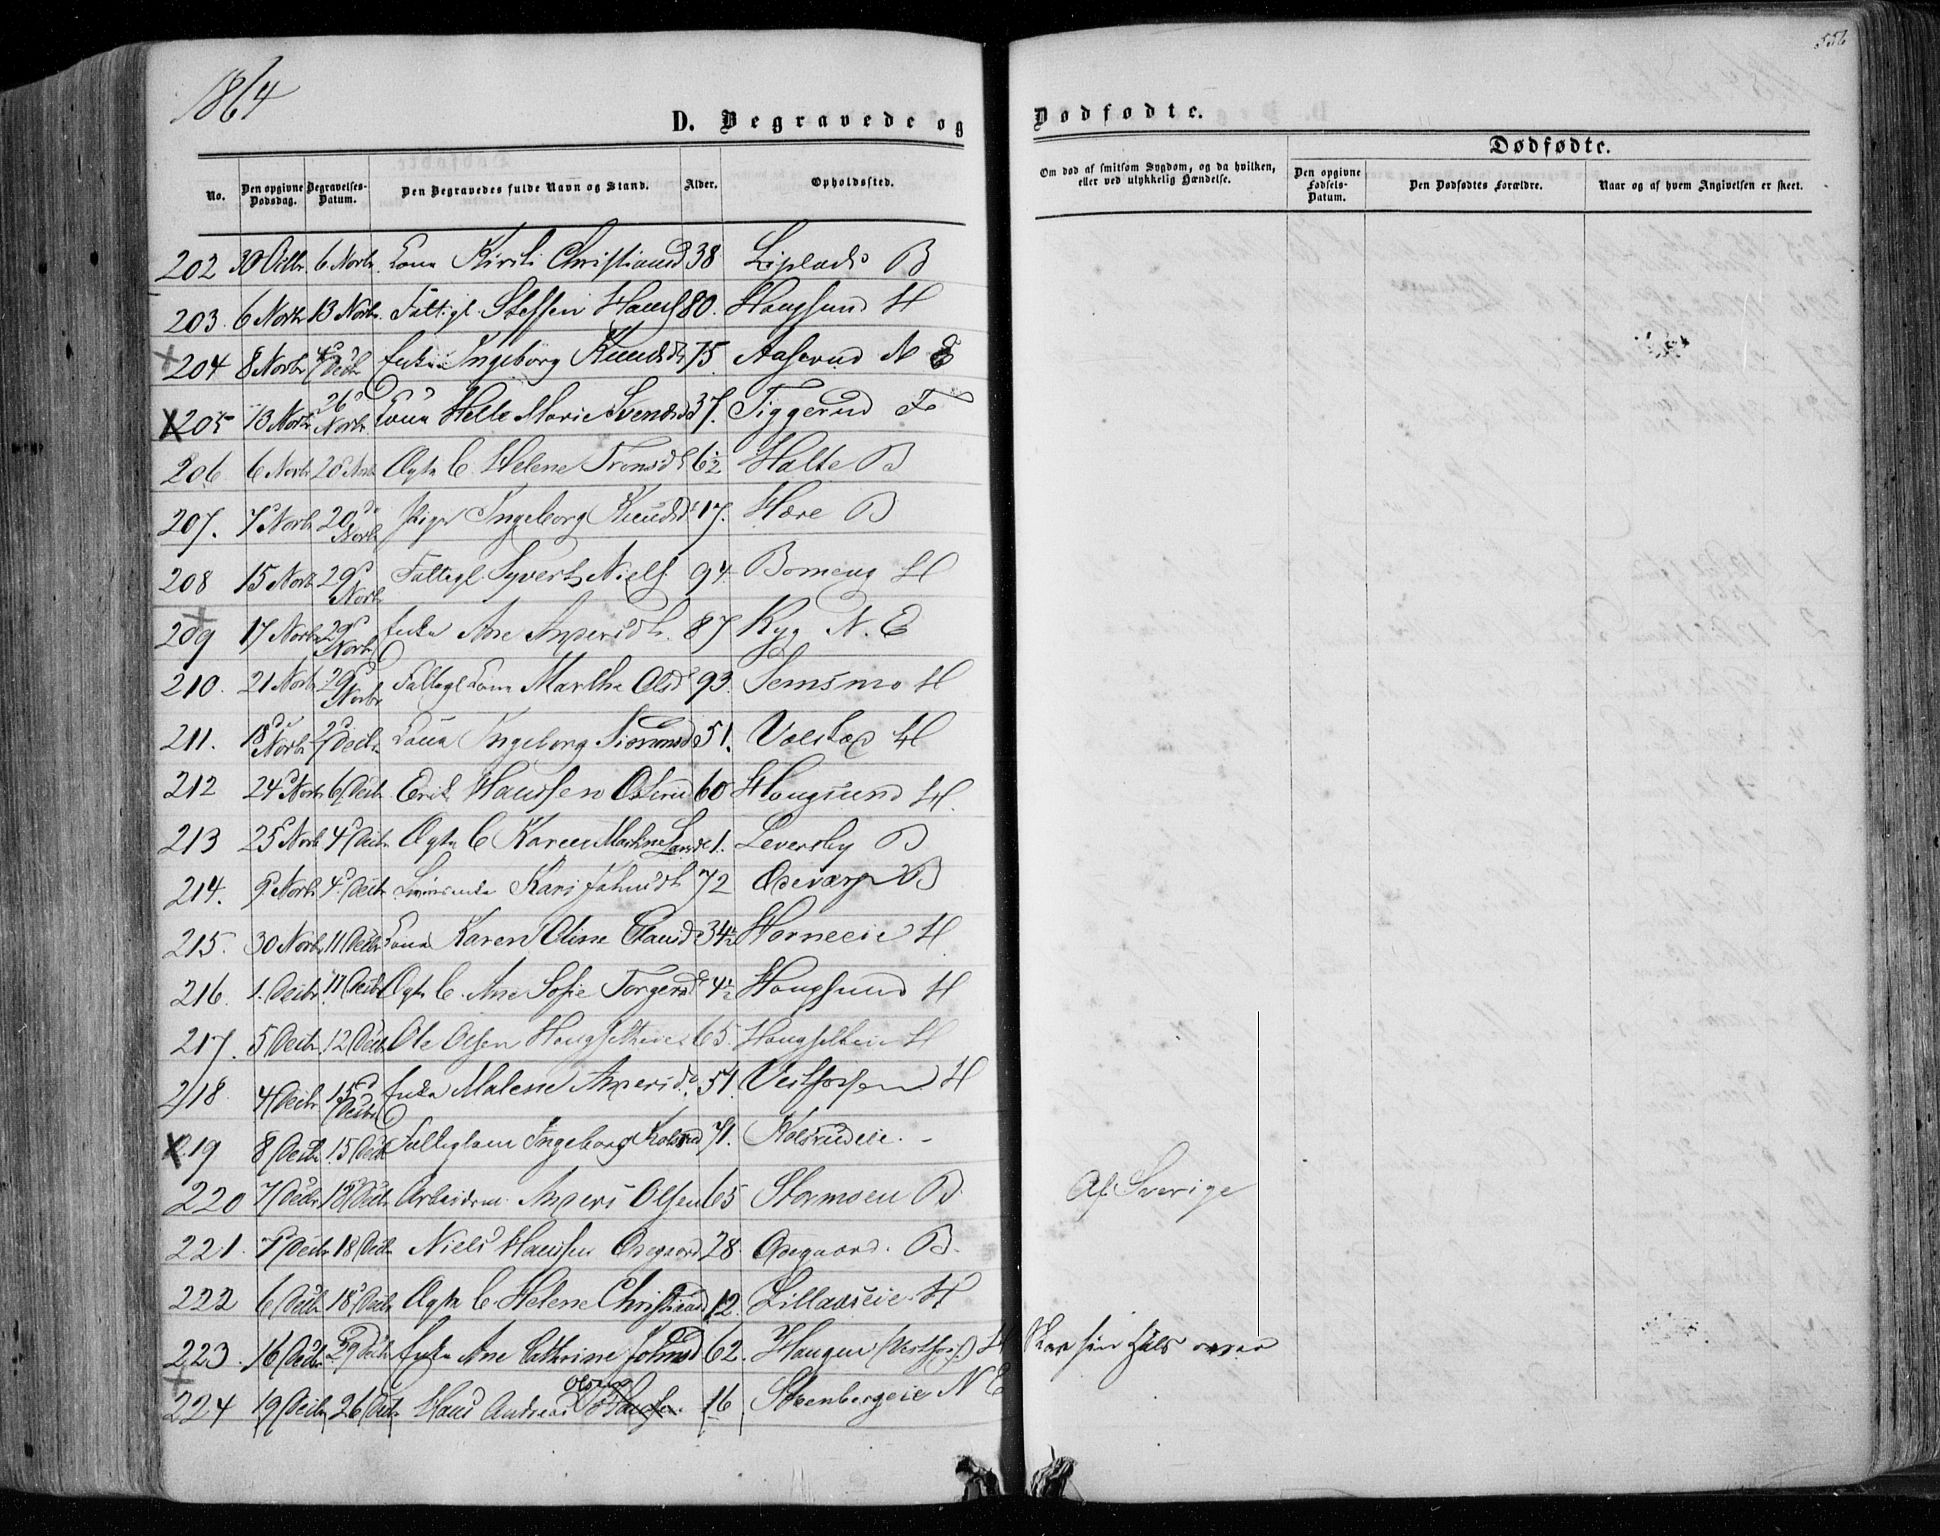 1864
556
D. Begravede og Dødfødte.
Dødfødte.
No. Den opgivne Dødsdag. Begravelses-Datum. Den Begravedes fulde Navn og Stand. Alder. Opholdssted. Om død af smitsom Sygdom, og da hvilken, eller ved ulykkelig Hændelse. Den opgivne Fødsels-Datum. Den Dødfødtes Forældre. Naar og af hvem Angivelsen er skeet.
202 30 Octbr 6 Novbr. Kona Kirsti Christiansd 38 B
203. 6 Novbr 13 Novbr. Fattigl. Steffen Hans. 80. Hougsund H
204 8 Novbr Decbr Enke Ingeborg Knudsd 75. Aaserud N E
205 13 Novbr 26 Novbr. Kona Helle Marie Svendsd 37. Tiggerud F
206. 6 Novbr 20 Novbr Ægte B. Helene Tronsd 6½ Halte B
207. 7 Novbr 20 Novbr Pige Ingeborg Knudsd 17. Hære B
208 15 Novbr 29 Novbr Fattigl. Syvert Niels. 94 Bomeng H
209 17 Novbr 29 Novbr Enke Ane Andersd. 87 Ryg N. E
210. 21 Novbr 29 Novbr Fattigl Kone Marthe Olsd 93. Semsmo H
211. 18 Novbr 2 Decbr. Kona Ingeborg 51. H
212 24 Novbr 6 Decbr Erik Hanssen 60 Hougsund H.
213 25 Novbr 4 Decbr Ægte B Karen Mathine Larsd 1. Leversby B
214. 9 Novbr 4 Decbr Kari Johnsd 72 B
215. 30 Novbr 11 Decbr Kona Karen Oline 34½ Horneeie H
216. 1. Decbr. 11 Decbr Ægte B. Ane Sofie Torgersd 4½ Hougsund H
217. 5 Decbr. 12 Decbr Ole Olsen 65. H
218. 4 Decbr 15 Decbr Enke Malene Andersd. 51. Vestfossen H
219 8 Decbr 15 Decbr Fattiglem Ingeborg Kolsrud 71. Kolsrudeie.
220 7 Decbr 18 Decbr Arbeidsm. Anders Olsen 65 Stormoen B. Af Sverige
221. 7 Decbr 18 Decbr Niels Hanssen Opegaard 28. Opegaard. B.
222 6 Decbr 18 Decbr Ægte B. Helene Christiansd 12. Lillaaseie. H
223. 16 Decbr 29 Decbr Enke Ane Cathrine Johnsd 62. Haugen (Vestfos.) H Skar sin Hals over
224 19 Decbr 26 Decbr Hans Andreas Olsen 16 Steenbergeie N E